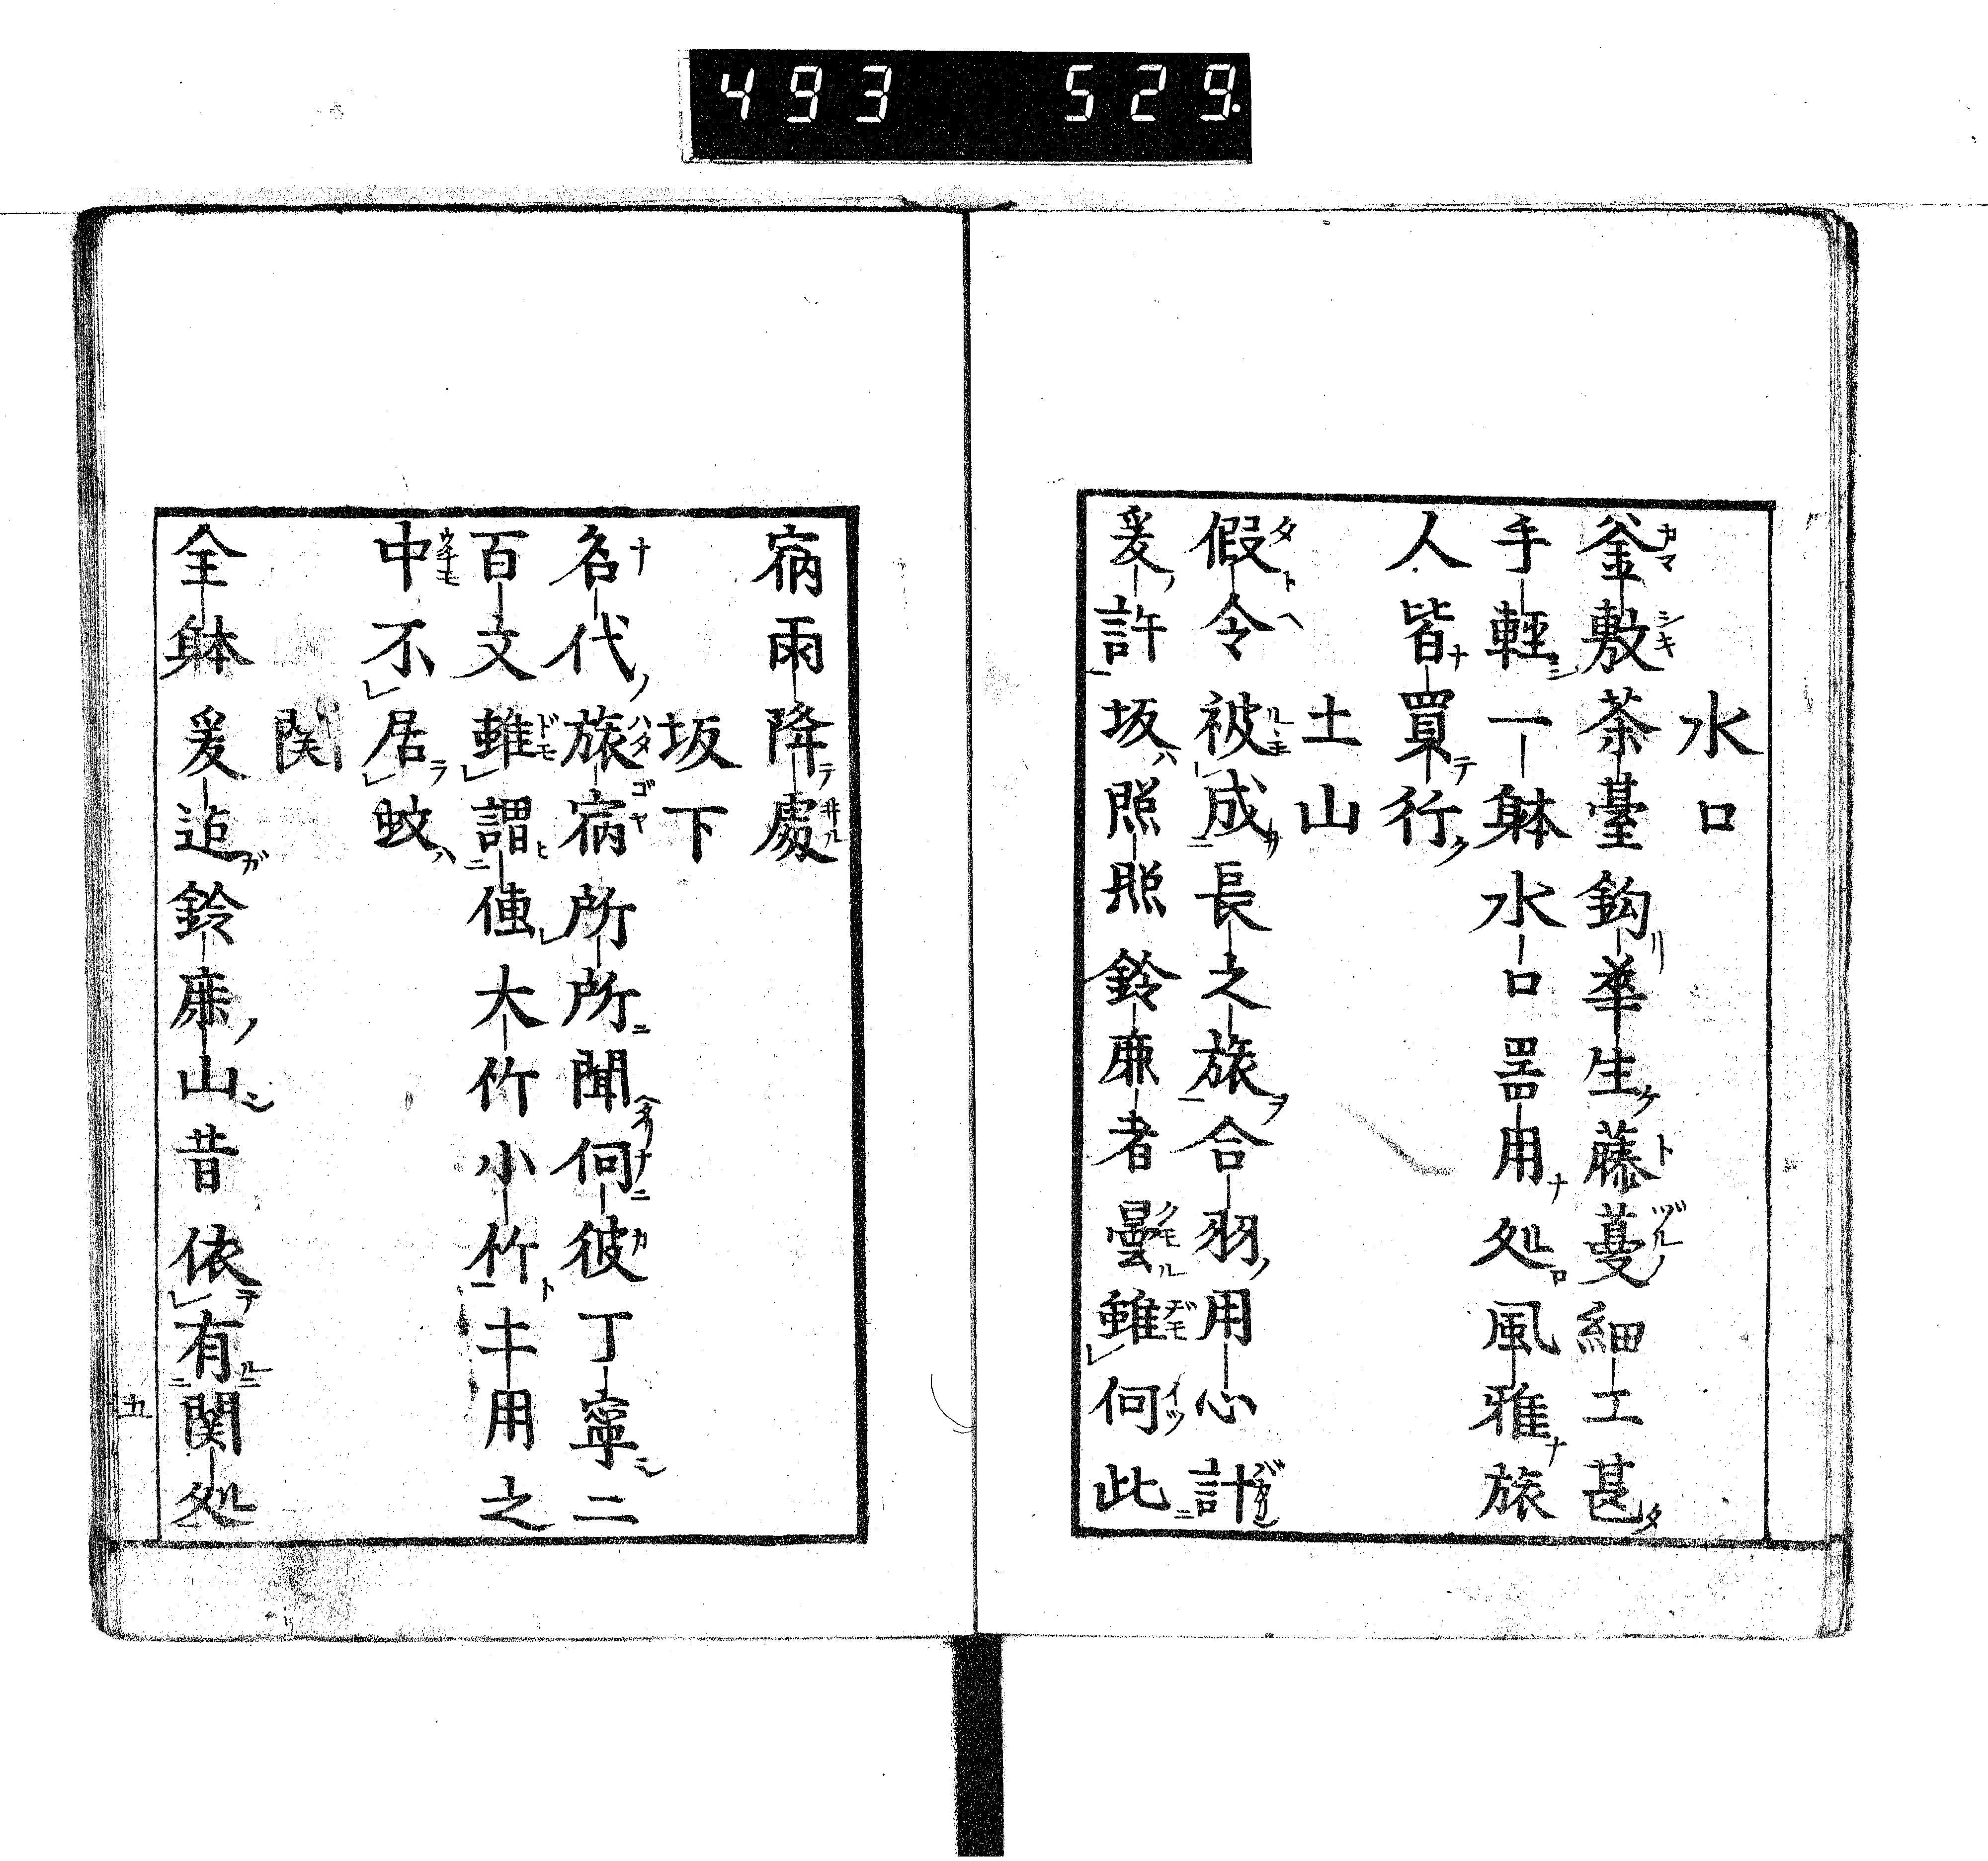 493 529.
水口
釜敷茶臺鈎華生藤蔓細工甚
手輕一躰水口噐用処風雅旅
人皆買行
土山
假令被成長之旅合羽用心計
爰許坂照照鈴鹿者曇雖何此
宿雨降處
坂下
名代旅宿所所聞何彼丁寧二
百文雖謂使大竹小竹牛用之
中不居蚊
関
全躰爰迠鈴鹿山昔依有関処
五